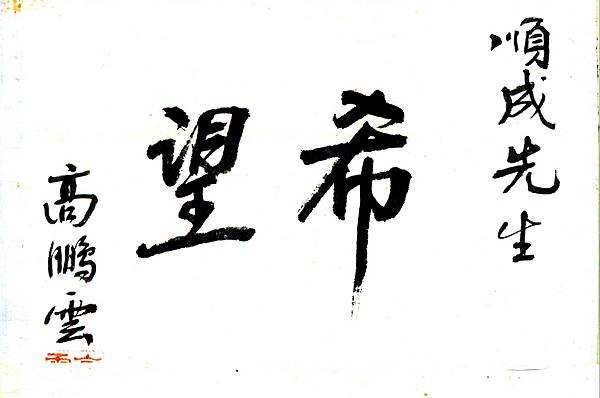 順成先生
希望
高鵬雲